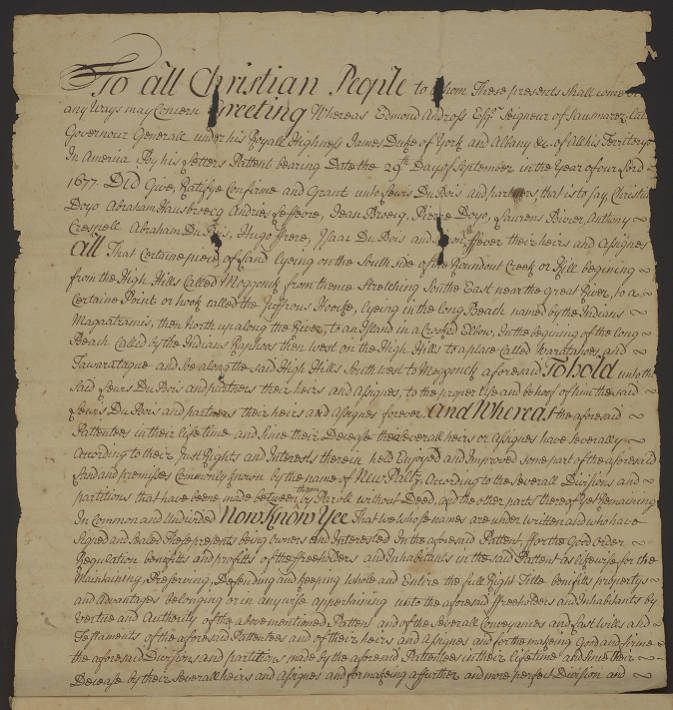 To all Christian People to whom These presents shall come or
any Ways may Concern Greeting Whereas Edmond Andross Esqr. Seigneur of Sausmarez
Governour Generall under his Royall Highness James Duke of York and Albany &c. of All his Territoryes
In America By his Letters Pattent bearing Date the 29th Day of September in the Year of our Lord
1677. Did Give, Ratifye Confirme and Grant unto Lewis Du Bois and partners, that is to say, Christian
Doyo Abraham Hausbroecq Andries Leffevre, Jean Broecq, Pierre Doyo, Laurens Bivier, Anthony
Crespell Abraham Du Bois, Hugo Frere, Isaac Du Bois and Simon Leffever their heirs and Assignes
All That Certaine piece of Land Lyeing on the South side of the Roundout Creek or Kill begining
from the High Hills Called Moggonck from thence Stretching South East near the Great River, to a
Certaine Point or hook called the Joffrous Hoocke, lyeing in the long Reach named by the Indians
Magaatramis, then North up along the River, to an Island in a Crooked Elbow, In the begining of the long
Reach Called by the Indians Raphoos then west on the High Hills to a place Called Waratahoes and
Tawarataque and so along the said High Hills South west to Moggonck aforesaid To hold unto the
said Lewis Du Bois and partners their heirs and Assignes, to the proper Use and behoof of him the said
Lewis Du Bois and partners their heirs and Assignes forever And Whereas the aforesaid
Patentees in their life time and Since their Decease the severall heirs or Assignes have severally
According to their Just Rights and Interests therein held Enjoyed and Improved some part of the aforesaid
Land and premises Commonly Known by the name of New Paltz, According to the severall Divisions and
partitions that have beene made between them by Paroll without Deed, and the other parts thereof yet Remaining
In Common and Undivided Now Know Yee That we whose names are under written and who have
Signed and sealed These presents being owners and Interested In the aforesaid Patent for the Good order
Regulation benefitts and profitts of the ffreeholders and Inhabitants in the said Pattent as likewise for the
Maintaining, Preserving, Defending and keeping whole and Entire the full Right Title benifitts property
and Advantages belonging or in any wise appertaining unto the aforesaid ffreeholders and Inhabitants by
Vertue and Authority of the above mentioned Patten and of the Severall Conveyances and Last Wills and
Testaments of the aforesaid Pattentees and of their heirs and Assignes and for the makeing Good and firme
the aforesaid Divisions and partitions made by the aforesaid Patentees in their lifetime and Since their
Decease by their Severall heirs and Assignes and for makeing a further and more perfect Division and